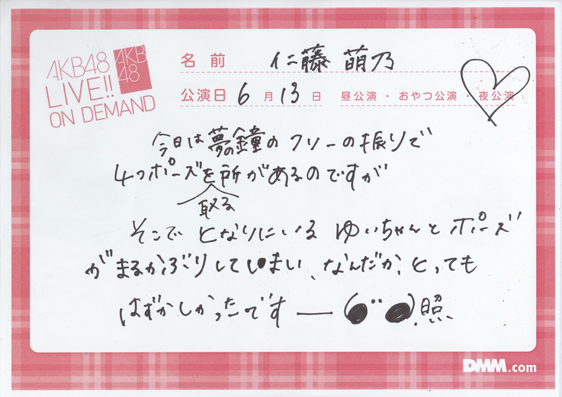 AKB48
LIVE!!
ON DEMAND
AKB
48
名前 仁藤 萌乃
公演日 6月13日 昼公演・おやつ公演・夜公演
今日は夢の鐘のフリーの振りで
4つポーズを取る所があるのですが
そこで となりにいる ゆいちゃんと ポーズ
がまるかぶりしてしまい、なんだか、とっても
はずかしかったです ― 照
DMM.com